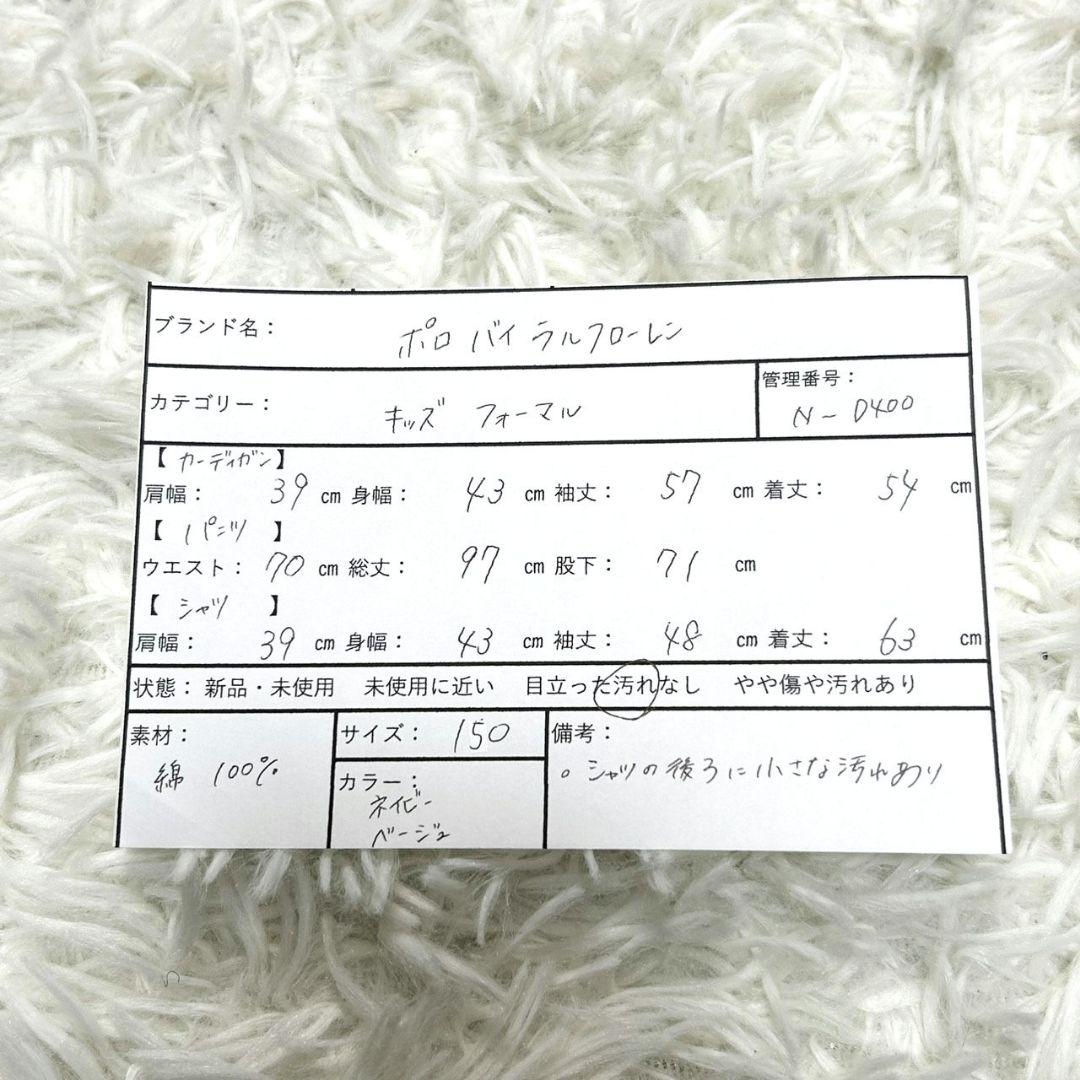 ブランド名： ポロ バイ ラルフローレン
カテゴリー： キッズ フォーマル
管理番号：
N-0400
【カーディガン】
肩幅： 39 cm 身幅： 43 cm 袖丈： 57 cm 着丈： 54 cm
【パンツ】
ウエスト： 70 cm 総丈： 97 cm 股下： 71 cm
【シャツ】
肩幅： 39 cm 身幅： 43 cm 袖丈： 48 cm 着丈： 63 cm
状態： 新品・未使用 未使用に近い 目立った汚れなし やや傷や汚れあり
素材：
綿 100%
サイズ： 150
カラー：
ネイビー
ベージュ
備考：
。シャツの後ろに小さな汚れあり